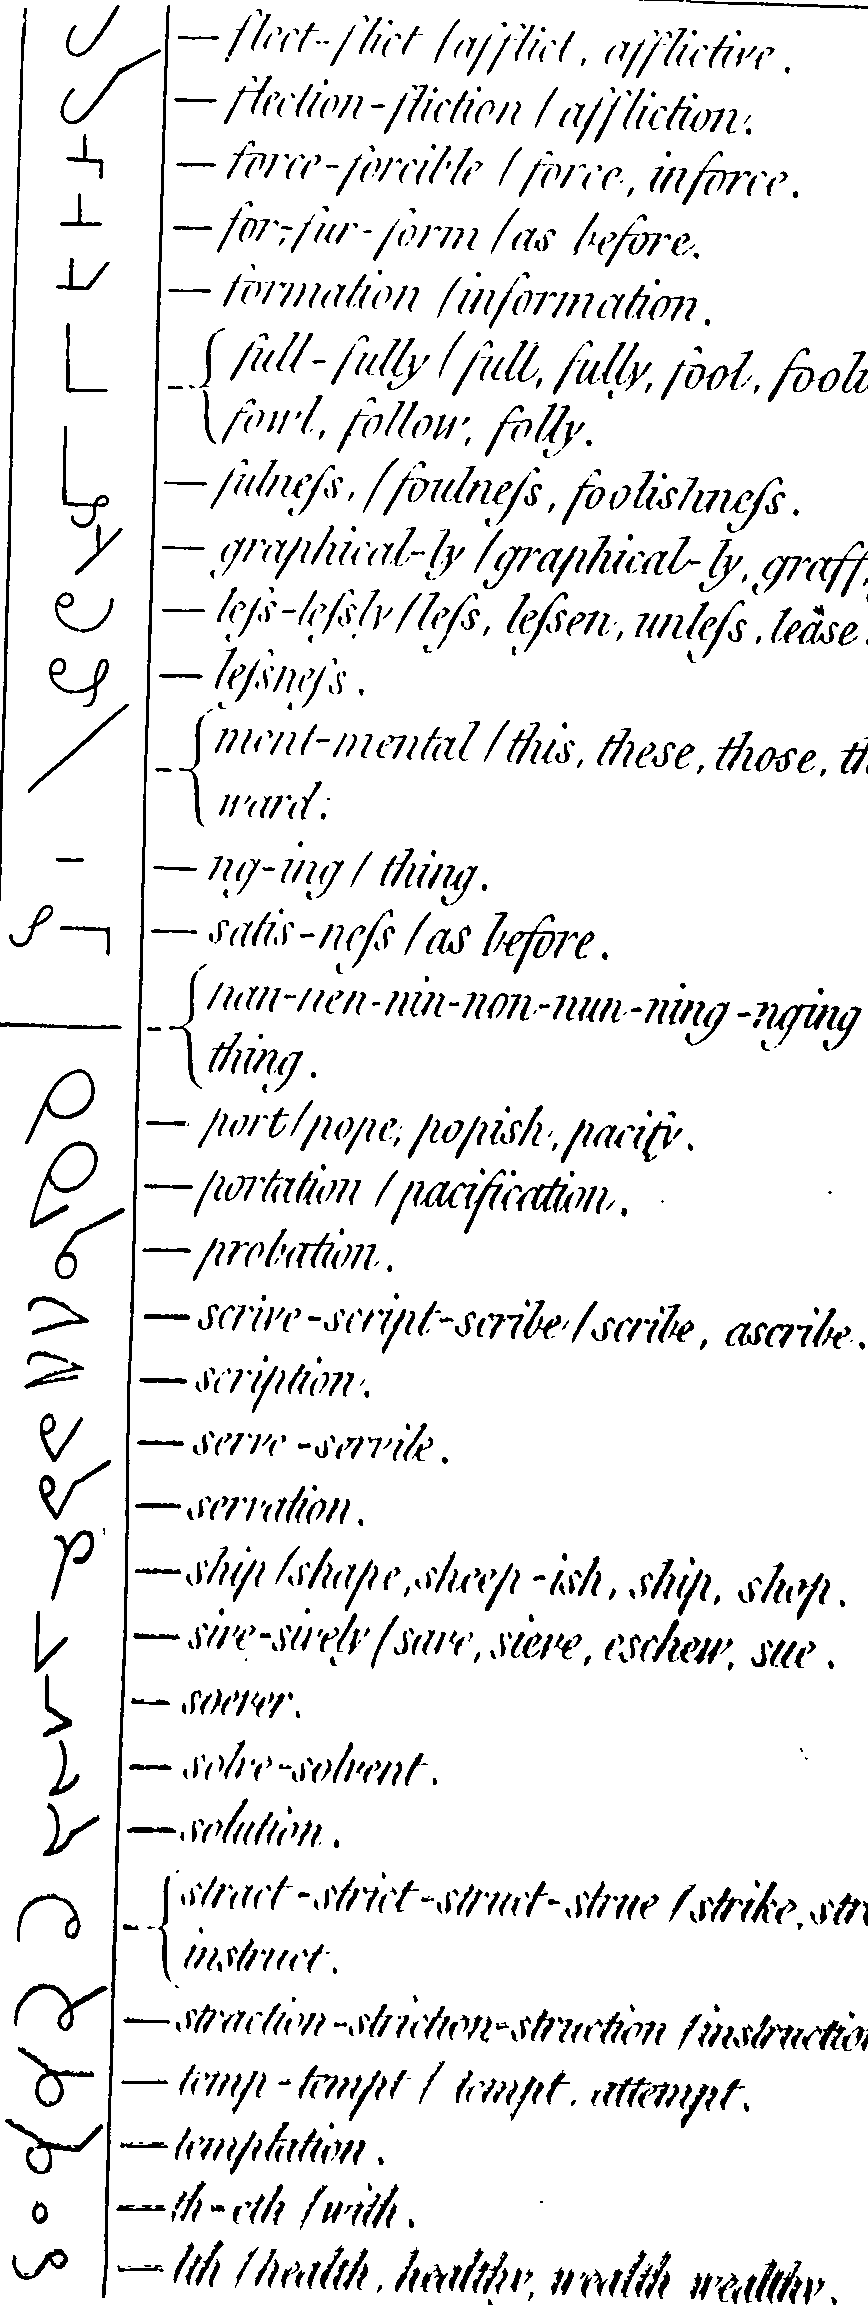 — flect-flict / afflict, afflictive.
— flection-fliction / affliction.
— force-forcible / force, inforce.
— for-fur-form / as before.
— formation / information.
full-fully / full, fully, fool, foolı
fowl, follow, folly.
— fulneſs, / foulneſs, fooliſhneſs.
— graphical-ly / graphical-ly, graff,
— leſs-leſsly / leſs, leſsen, unleſs, lease.
— leſsneſs.
ment-mental / this, these, those, th
ward.
— ng-ing / thing.
— satis-neſs / as before.
nan-nen-nin-non-nun-ning-nging
thing.
— port / pope, popish, pacify.
— portation / pacification.
— probation.
— scrive-script-scribe / scribe, ascribe.
— scription.
— serve-servile.
— servation.
— ship / shape, sheep-ish, ship, shop.
— sive-sively / save, sieve, eschew, sue.
— soever.
— solve-solvent.
— solution.
stract-strict-struct-strue / strike, str
instruct.
— straction-striction-struction / instruction
— temp-tempt / tempt, attempt.
— temptation.
— th-eth / with.
— lth / health, healthy, wealth wealthy.